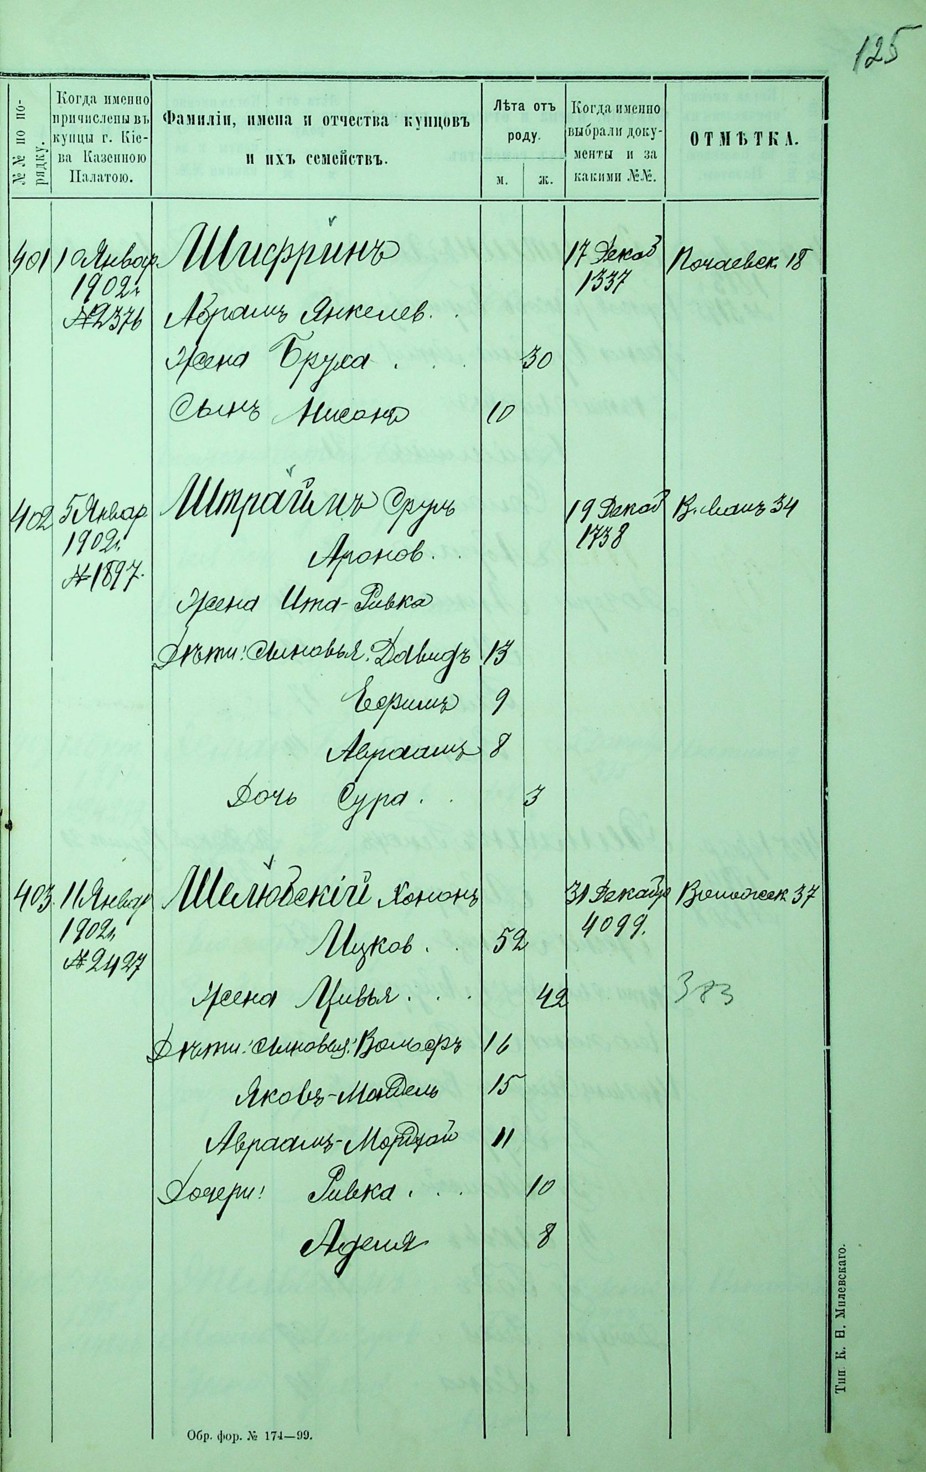 125
№№ по по-
рядку.
Когда именно
причислены въ
купцы г. Кіе-
ва Казенною
Палатою.
Фамиліи, имена и отчества купцовъ
и ихъ семействъ.
Лѣта отъ
роду.
м. ж.
Когда именно
выбрали доку-
менты и за
какими №№.
ОТМѢТКА.
401 10 Январ Шифринъ 17 Декаб Почаевск 18
1902г 1337
№2376 Абрамъ Янкелев.
Жена Бруха 30
Сынъ Нисонъ 10
402 5 Январ Штраймъ Сруль 19 Декаб В. Вал 34
1902г 1738
№1897. Аронов.
Жена Ита-Ривка
Дѣти: сыновья: Давидъ 13
Ефримъ 9
Авраамъ 8
Дочь Сура 3
403 11 Январ Шелюбскій Хононъ 31 Декабр Волошск 37
1902г Ицков. 52 4099.
№2427
Жена Цивья 42 383
Дѣти: сыновья: Вольфъ 16
Яковъ-Мендель 15
Авраамъ-Мордхай 11
Дочери: Ривка 10
Аделя 8
Обр. фор. № 174—99.
Тип. К. Н. Милевскаго.